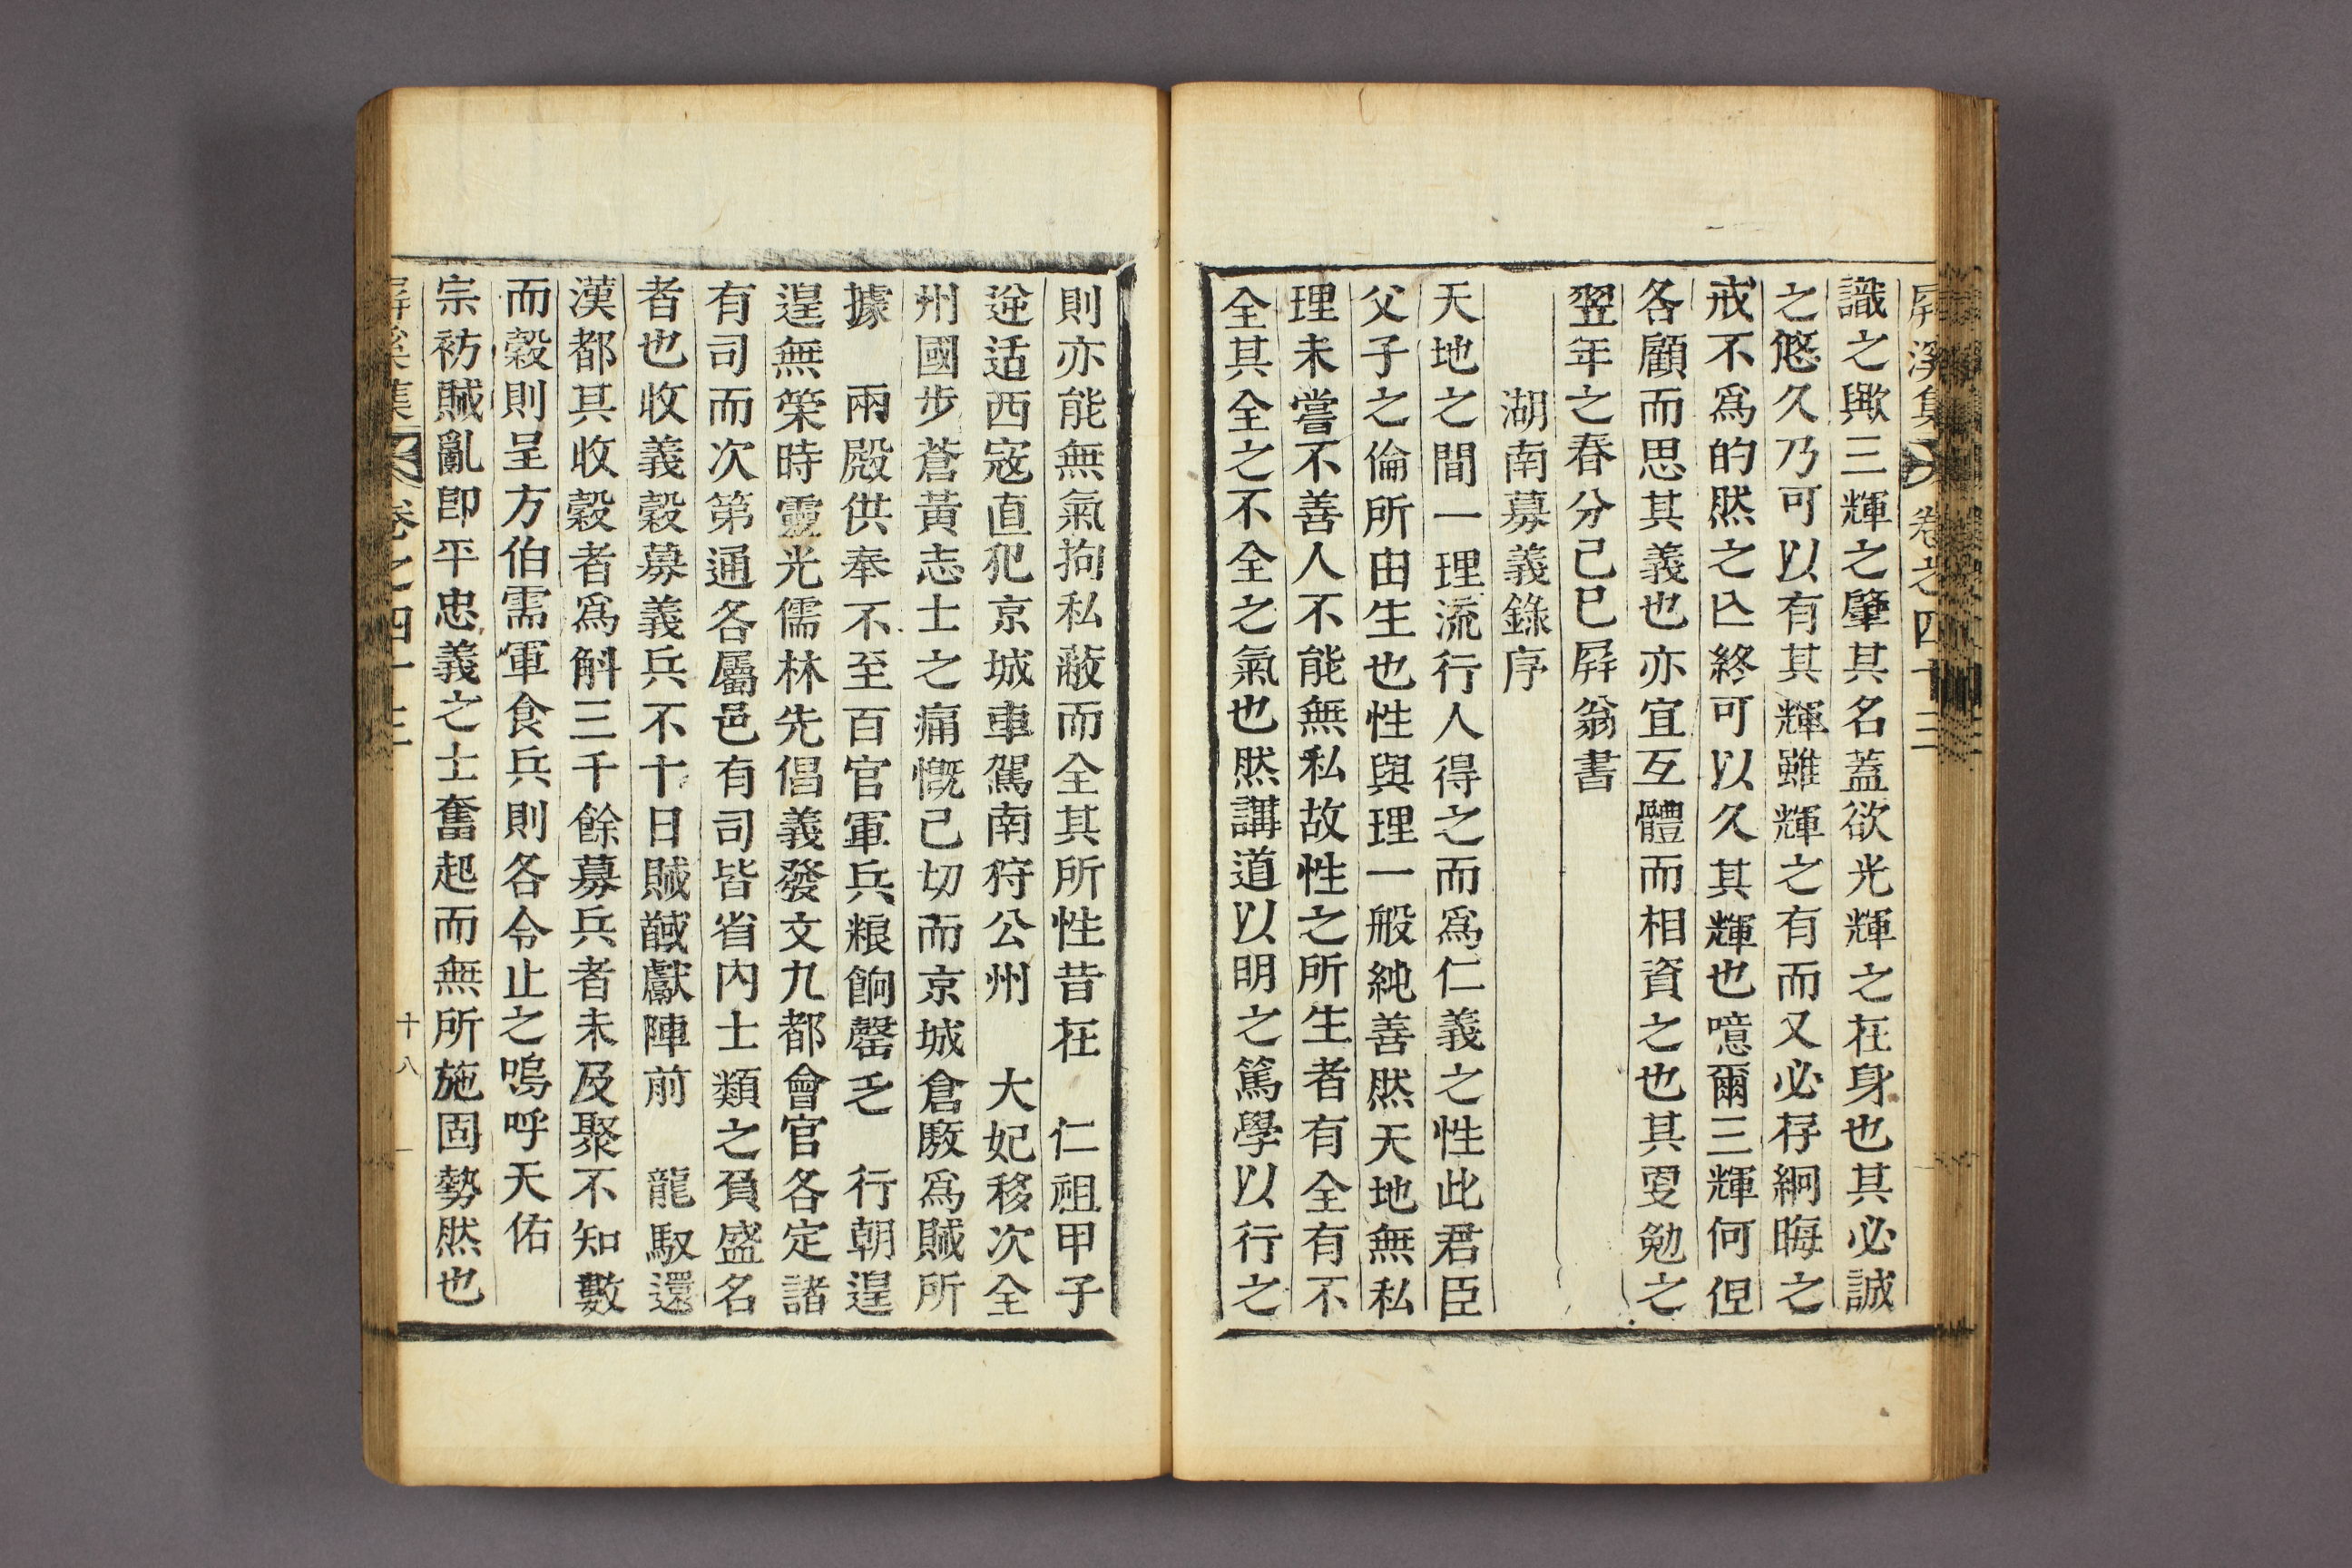 屛溪集 卷之四十三
識之歟三輝之肇其名蓋欲光輝之在身也其必誠
之悠久乃可以有其輝雖輝之有而又必存絅晦之
戒不爲的然之亾終可以久其輝也噫爾三輝何但
各顧而思其義也亦宜互體而相資之也其㪅勉之
翌年之春分己巳屛翁書
湖南募義錄序
天地之間一理流行人得之而爲仁義之性此君臣
父子之倫所由生也性與理一般純善然天地無私
理未嘗不善人不能無私故性之所生者有全有不
全其全之不全之氣也然講道以明之篤學以行之
則亦能無氣拘私蔽而全其所性昔在 仁祖甲子
逆适西寇直犯京城車駕南狩公州 大妃移次全
州國步蒼黃志士之痛慨已切而京城倉厫爲賊所
據 兩殿供奉不至百官軍兵粮餉罄乏 行朝遑
遑無策時靈光儒林先倡義發文九都會官各定諸
有司而次第通各屬邑有司皆省内士類之負盛名
者也收義穀募義兵不十日賊馘獻陣前 龍馭還
漢都其收穀者爲斛三千餘募兵者未及聚不知數
而穀則呈方伯需軍食兵則各令止之嗚呼天佑
宗祊賊亂卽平忠義之士奮起而無所施固勢然也
屛溪集 卷之四十三 十八